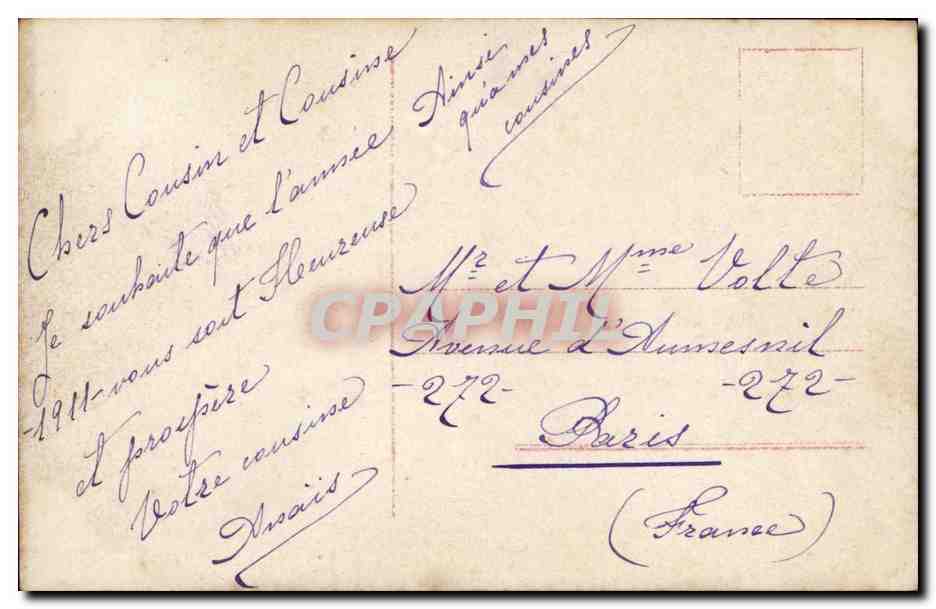 Chers Cousin et Cousine
Je souhaite que l'année
-1911- vous soit Heureuse
et prospère
Votre cousine
Anaïs
Ainsi
qu'a mes
cousines
Mr et Mme Volte
Avenue d'Aumesnil
-272- -272-
Paris
(France)
CPAPHIL